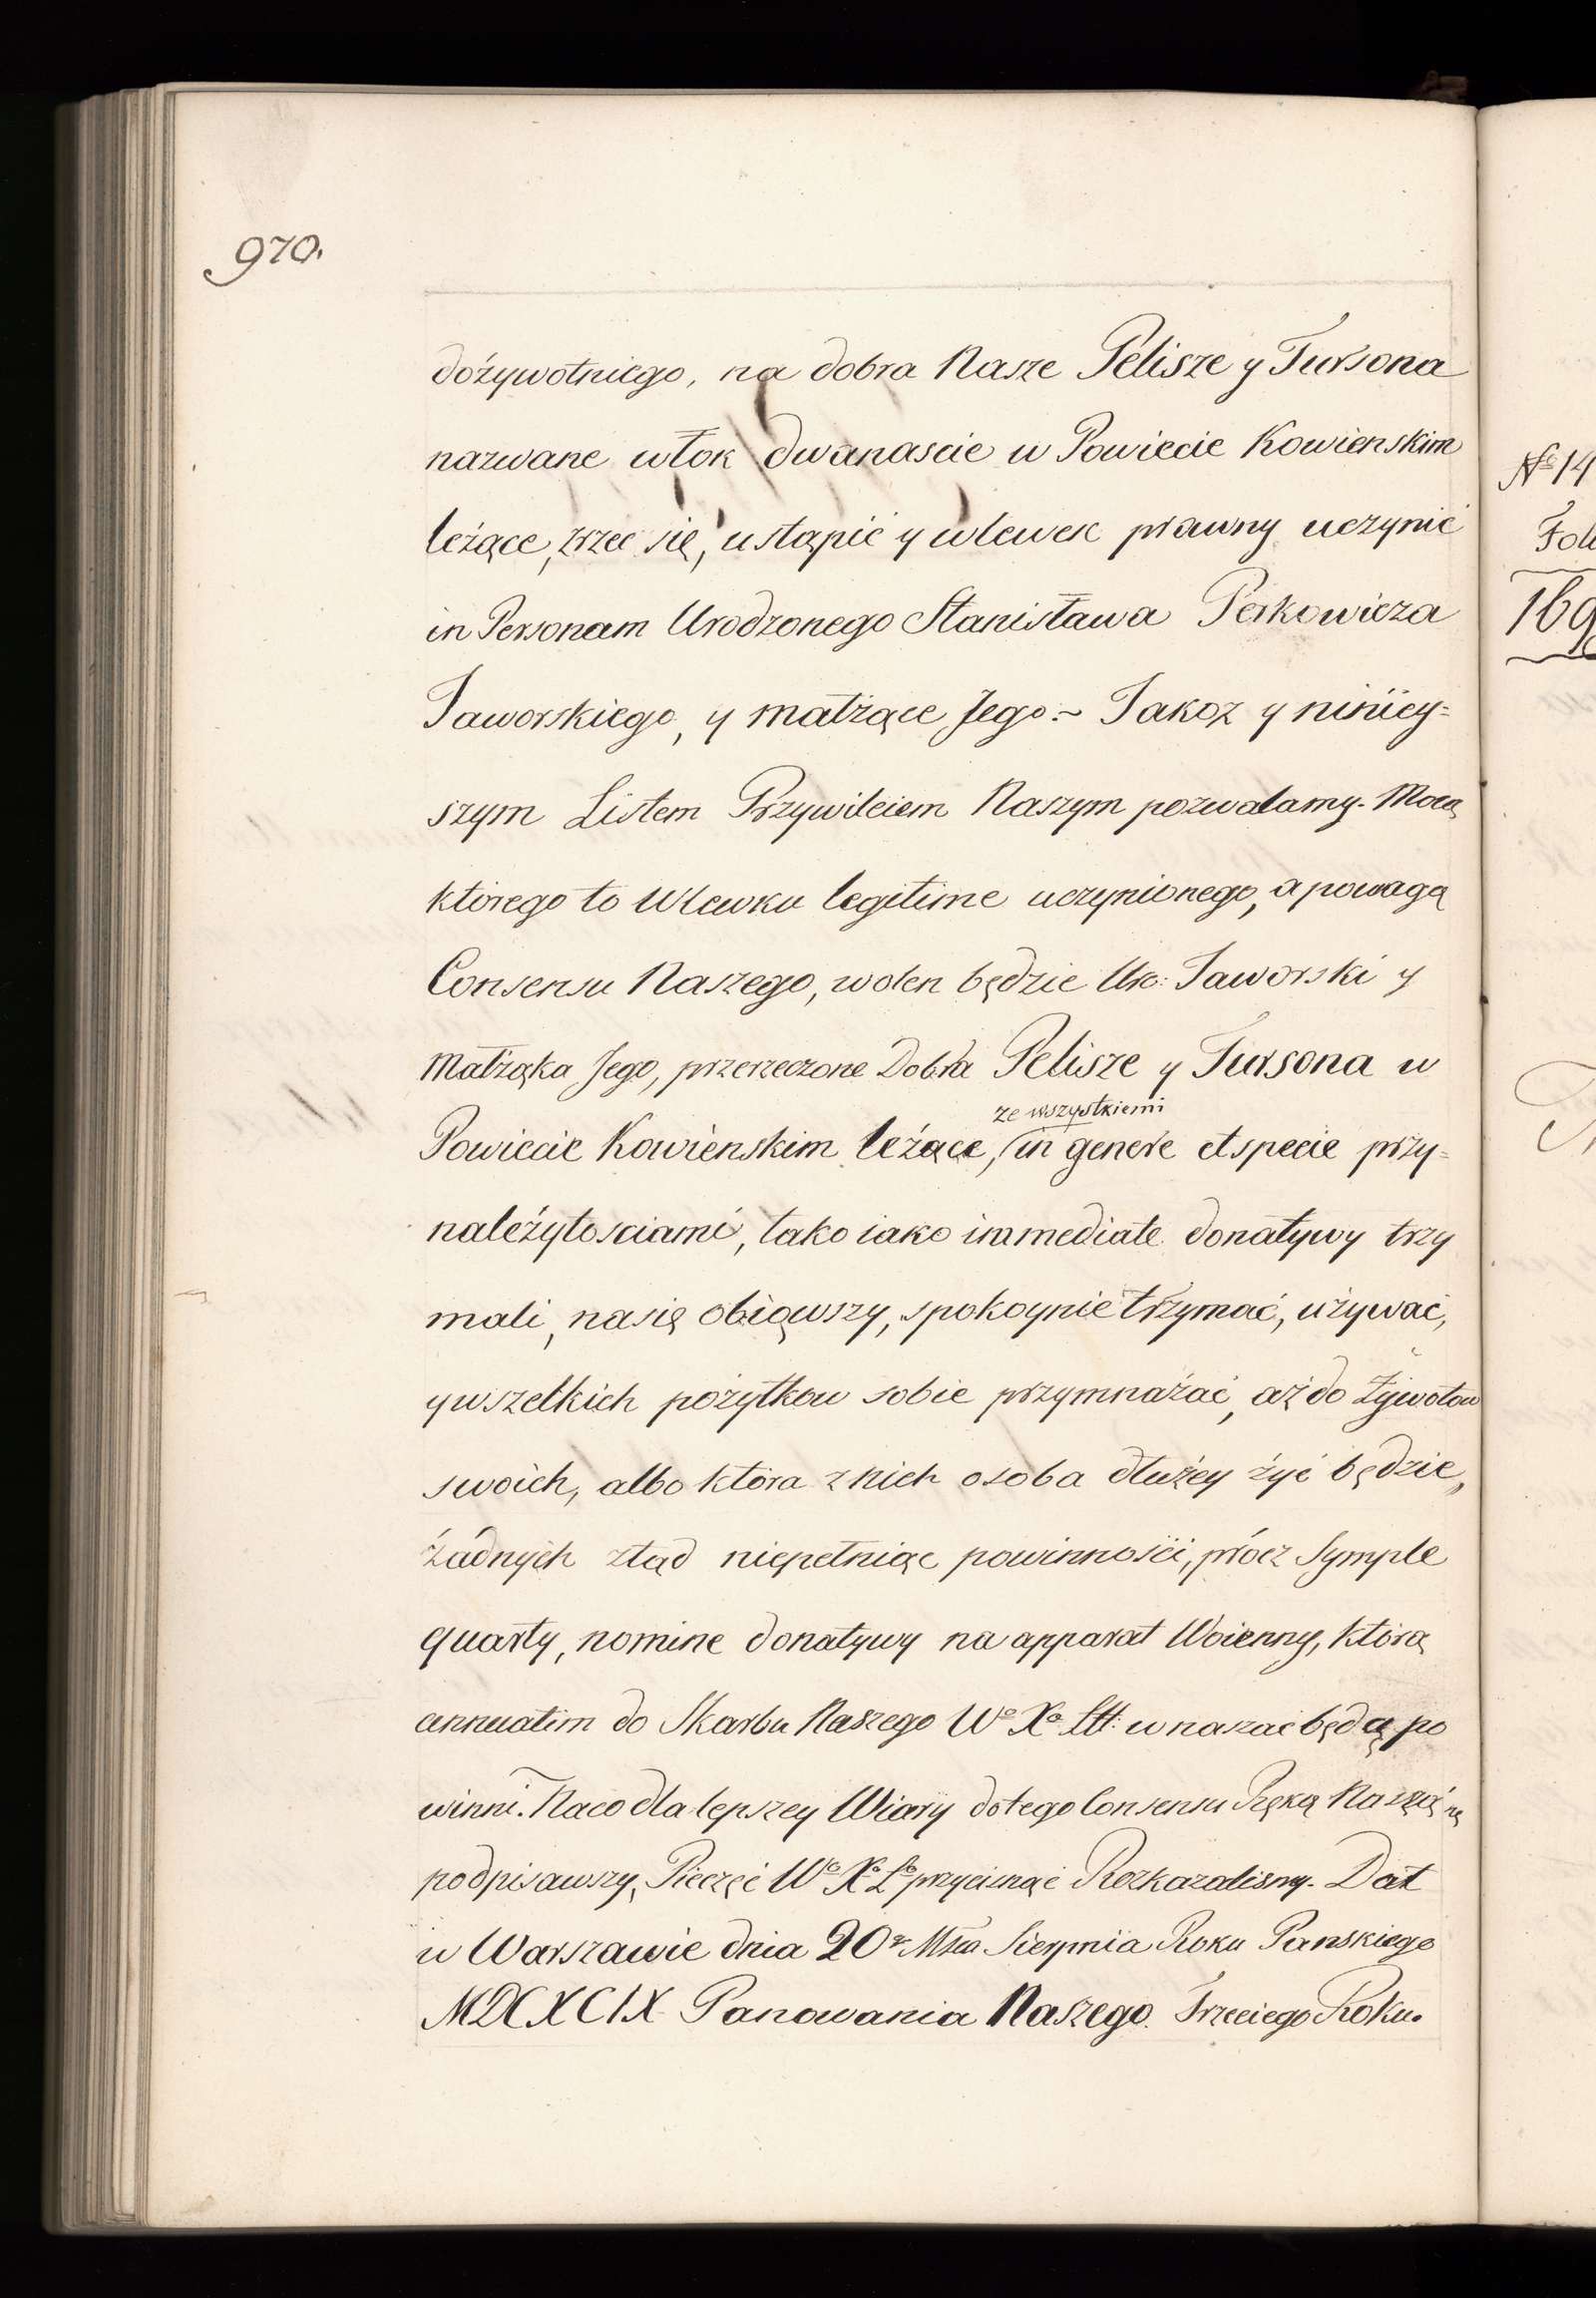 970.
dóżywotniego, na dobra Nasze Pelisze y Tursona
nazwane włok dwanascie w Powiecie Kowienskim
leżące, zrzec się, ustąpić y wlewek prawny uczynić
in Personam Urodzonego Stanisława Perkowicza
Jaworskiego, y małżące Jego.~ Jakoz y niniiey=
szym Listem Przywileiem Naszym pozwalamy. Mocą
ktorego to Wlewku legitime uczynionego, a powagą
Consensu Naszego, wolen będzie Uro: Jaworski y
Małżąka Jego, przerzeczone Dobra Pelisze y Tursona w
ze wszystkiemi
Powiecie Kowienskim leżące, in genere et specie przy=
należytosciami, tako iako immediate donatywy trzy
mali, na się obiąwszy, spokoynie trzymać, używać,
y wszelkich pożytkow sobie przymnażać, aż do Żywotow
swoich, albo ktora z nich osoba dłużey żyć będzie,
żadnych ztąd niepełniąc powinnosci, prócz symple
quarty, nomine donatywy na apparat Woienny, ktorą
annuatim do Skarbu Naszego Wo Xa Litt: wnaszać będą po
winni. Na co dla lepszey Wiary do tego Consensu Ręką Naszą
podpisawszy, Pieczęć Wo Xa Lo przycisnąć Rozkazalismy. Dat
w Warszawie dnia 20 Msca Sierpnia Roku Panskiego
MDCXCIX Panowania Naszego Trzeciego Roku.
No 14
Foli
169